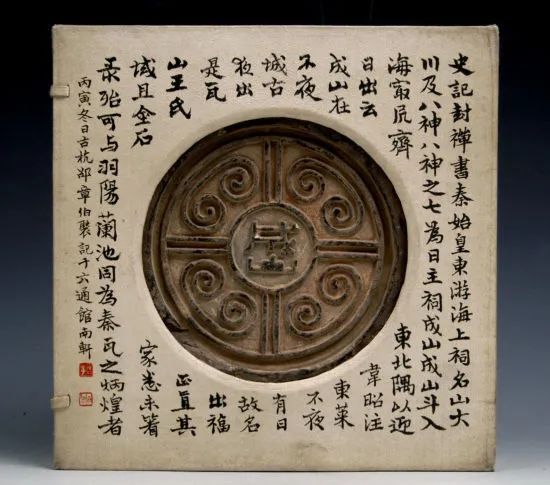 史記封禪書秦始皇東游海上祠名山大
川及八神八神之七為日主祠成山成山斗入
海最居齊東北隅以迎
日出云韋昭注
成山在東萊
不夜不夜
城古有日
夜出故名
是瓦出福
山王氏正直其
域且金石家悉未著
录殆可与羽陽蘭池同為秦瓦之炳煌者
丙寅冬日古杭邹章伯裝記十六通館南軒
成山